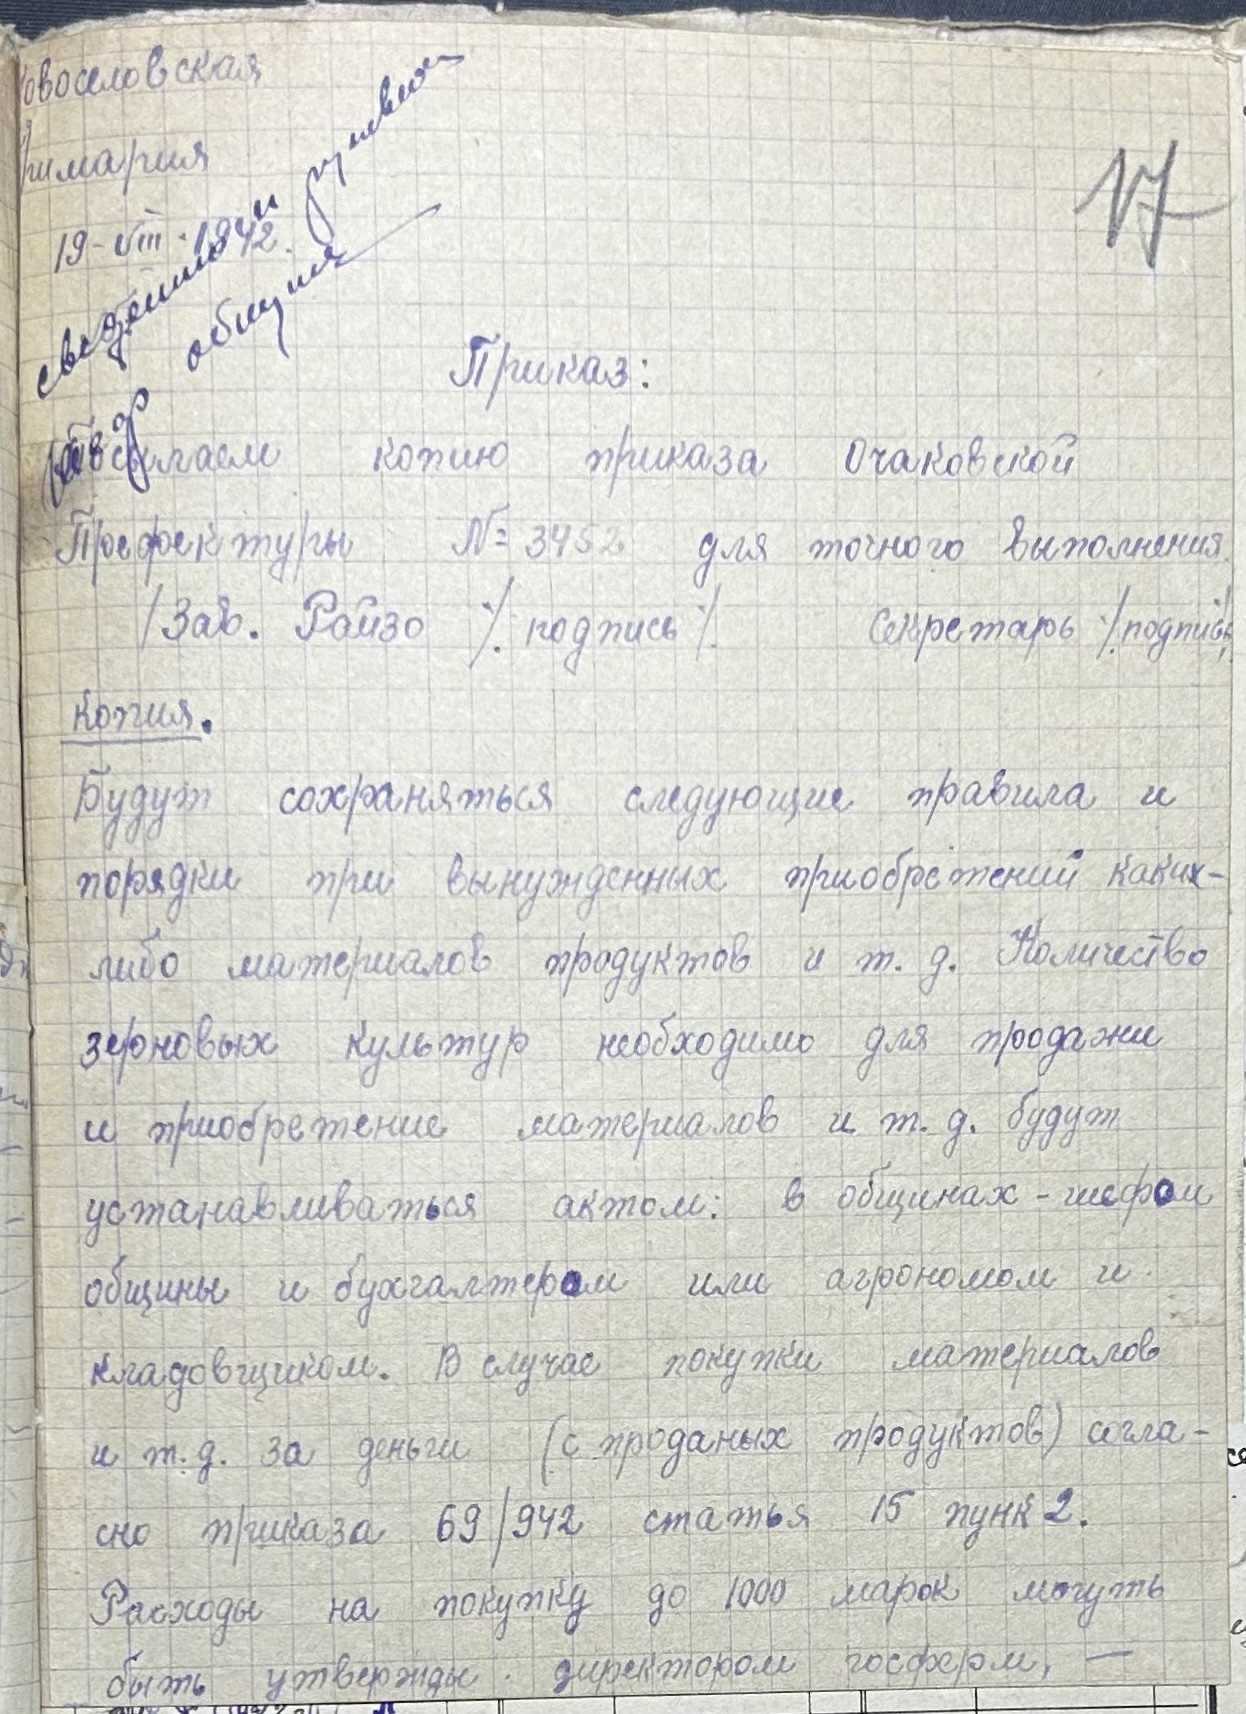 Новоселовская
Примария
19-VIII-1942.
сведению и руковод
общин
17
Приказ:
сылаем копию приказа Очаковской
Префектуры № 3452 для точного выполнения.
/Зав. Райзо ./. подпись ./. Секретарь ./. подпись
Копия.
Будут сохраняться следующие правила и
порядки при вынужденных приобретений каких-
либо материалов продуктов и т. д. Количество
зерновых культур необходимо для продажи
и приобретение материалов и т. д. будут
устанавливаться актом: в общинах - шефом
общины и бухгалтером или агрономом и
кладовщиком. В случае покупки материалов
и т. д. за деньги (с проданых продуктов) согла-
сно приказа 69/942 статья 15 пунк 2.
Расходы на покупку до 1000 марок могуть
быть утвержды. директором госферм, —